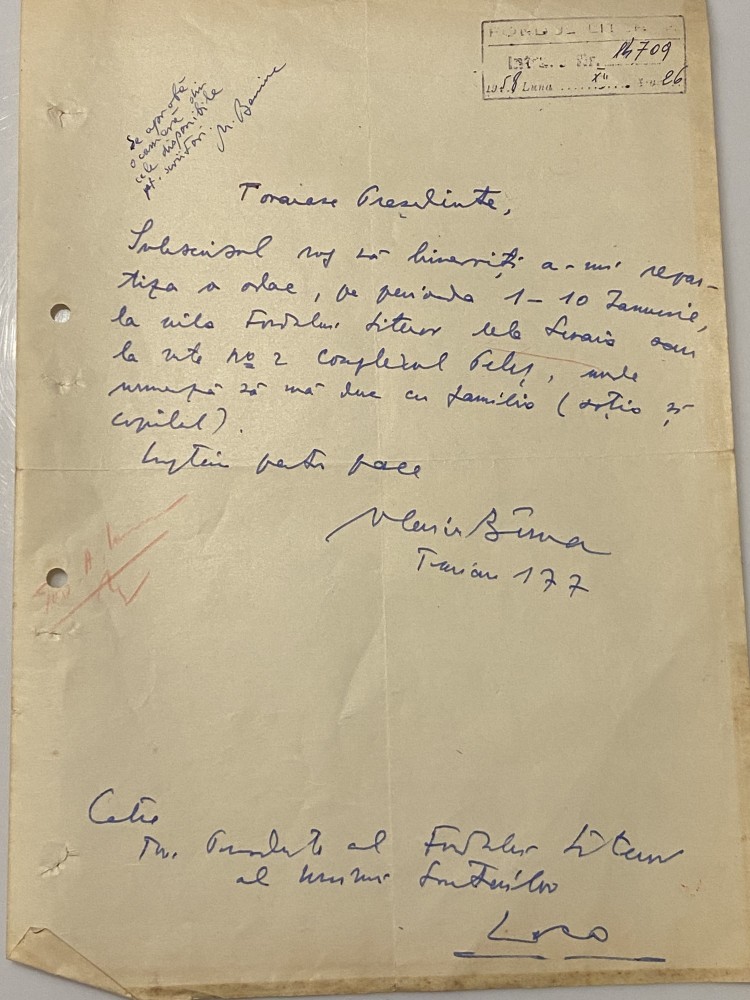 FONDUL LITERAR
INTR. Nr. 14709
1958 Luna XII Ziua 26
Se aprobă
o cameră din
cele disponibile
pt. scriitori.
M. Banuș
Tovarășe Președinte,
Subsemnatul rog să binevoiți a-mi repar-
tiza o odae, pe perioada 1-10 Ianuarie,
la vila Fondului Literar dela Sinaia sau
la vila No 2 complexul Peleș, unde
urmează să mă duc cu familia (soția și
copilul).
Luptăm pentru pace
Bîrna
Traian 177
Către
Tov. Președinte al Fondului Literar
al Uniunii Scriitorilor
Loco